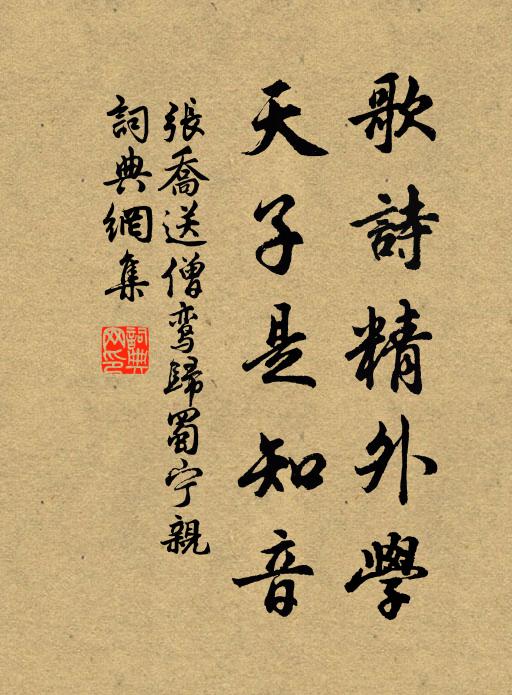 歌詩精外學
天子是知音
張喬送僧鸾歸蜀宁親
詞典網集
詞典网印